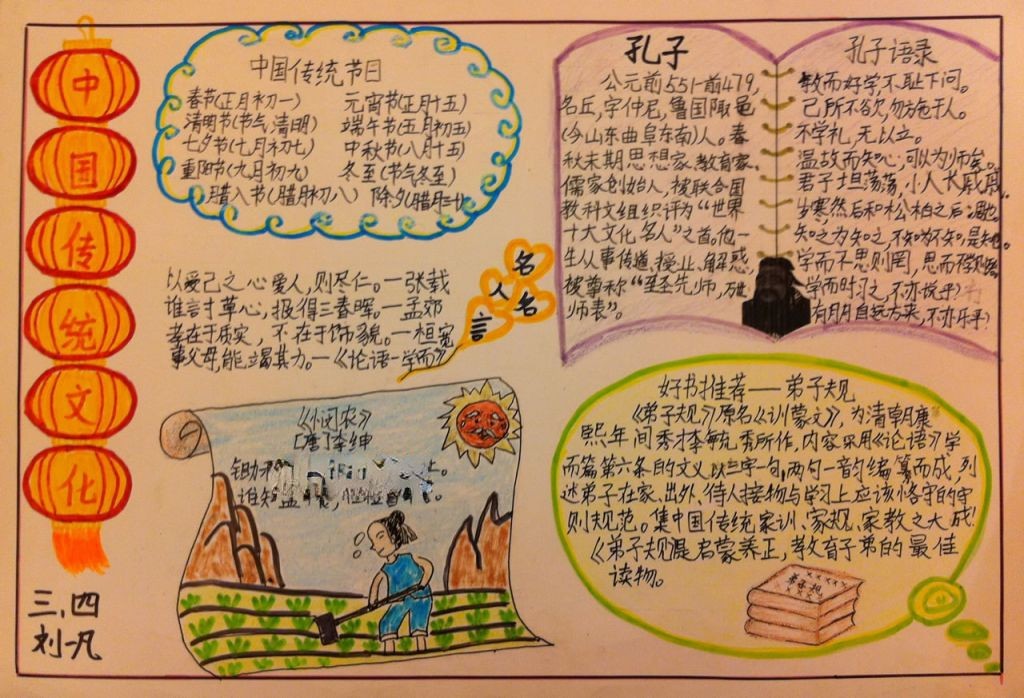 中国传统文化
三、四
刘一凡
中国传统节日
春节(正月初一) 元宵节(正月十五)
清明节(节气清明) 端午节(五月初五)
七夕节(七月初七) 中秋节(八月十五)
重阳节(九月初九) 冬至(节气冬至)
腊八节(腊月初八) 除夕(腊月三十)
名人名言
以爱己之心爱人,则尽仁。—张载
谁言寸草心,报得三春晖。—孟郊
孝在于质实,不在于饰貌。—桓宽
事父母,能竭其力。—《论语-学而》
《悯农》
[唐]李绅
锄禾
谁知盘
孔子
公元前551-前479,
名丘,字仲尼,鲁国陬邑
(今山东曲阜东南)人。春
秋末期思想家、教育家、
儒家创始人,被联合国
教科文组织评为“世界
十大文化名人”之首。他一
生从事传道、授业、解惑,
被尊称“至圣先师,万世
师表”。
孔子语录
敏而好学,不耻下问。
己所不欲,勿施于人。
不学礼,无以立。
温故而知心,可以为师矣。
君子坦荡荡,小人长戚戚。
岁寒然后知松柏之后凋也。
知之为知之,不知为不知,是知也。
学而不思则罔,思而不学则殆。
学而时习之,不亦悦乎?
有朋自远方来,不亦乐乎?
好书推荐——弟子规
《弟子规》原名《训蒙文》,为清朝康
熙年间秀才李毓秀所作,内容采用《论语》学
而篇第六条的文义以三字一句,两句一韵编纂而成,列
述弟子在家、出外、待人接物与学习上应该恪守的守
则规范。集中国传统家训、家规、家教之大成!
《弟子规》是启蒙养正,教育子弟的最佳
读物。
弟子规